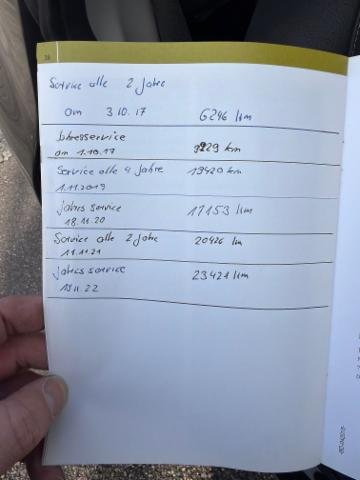 Service alle 2 Jahre
am 3 10. 17 6246 km
Jahresservice
am 1.10.17 9229 km
Service alle 4 Jahre 13420 km
1.11.2019
Jahres service 17153 km
18.11.20
Service alle 2 Jahre 20426 km
11.11.21
Jahres service 23421 km
19 11. 22